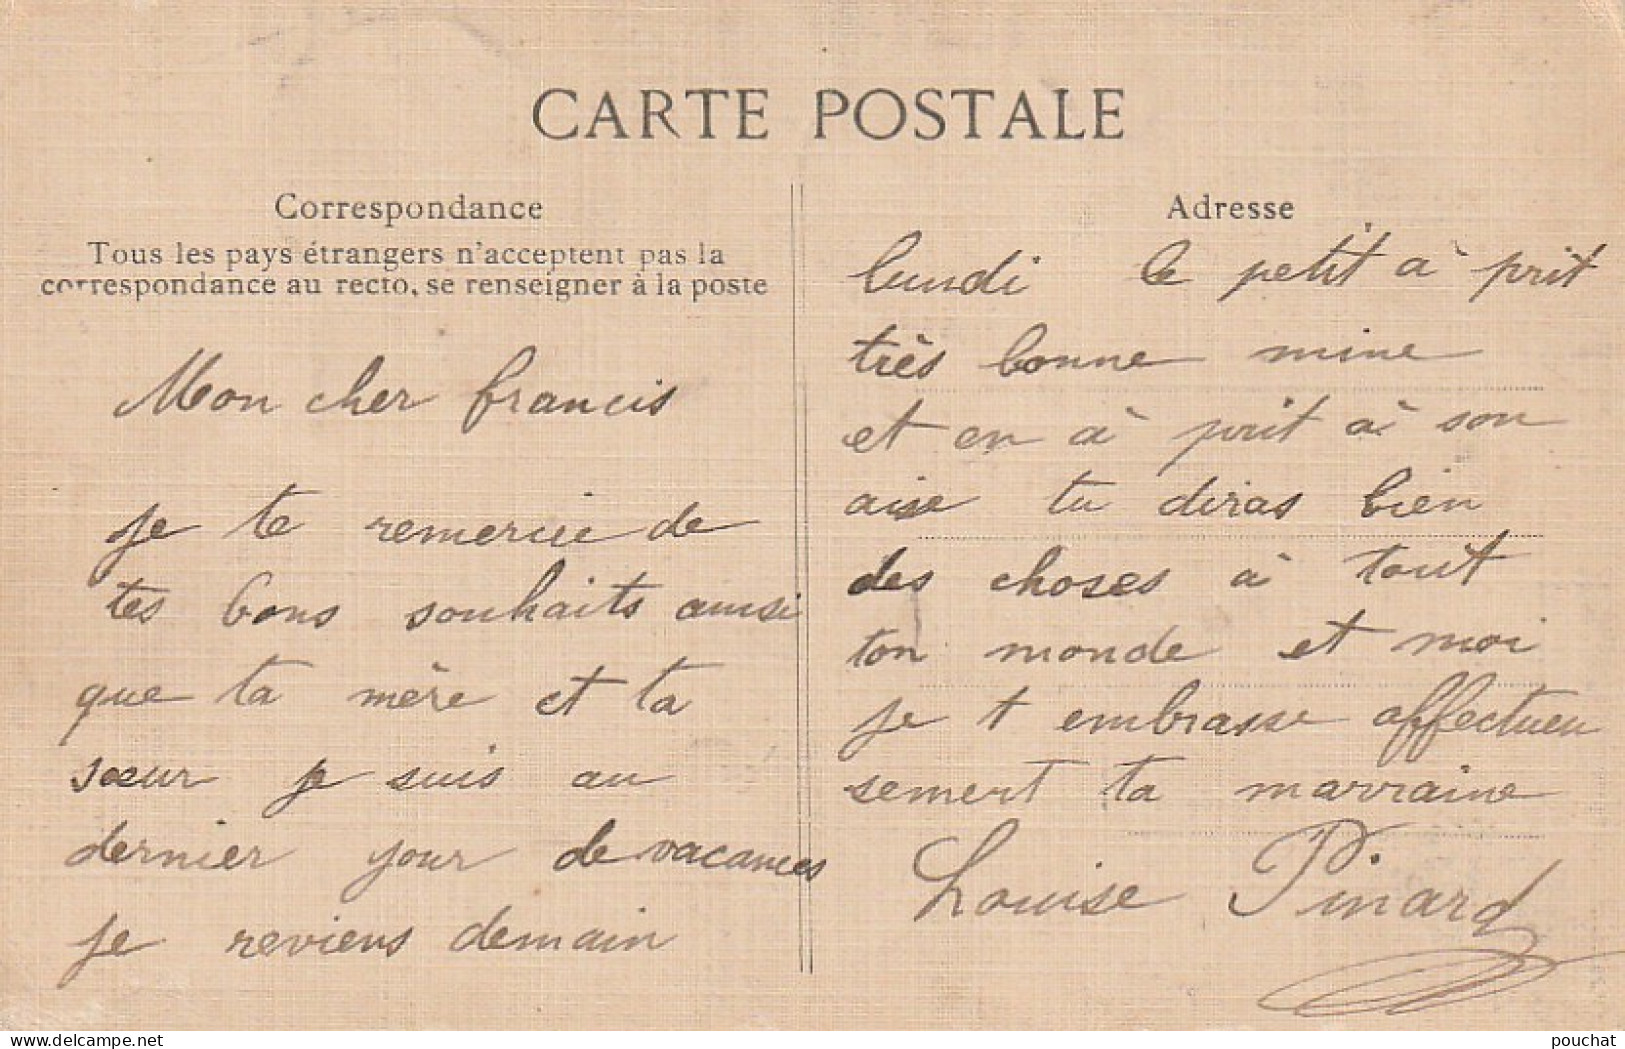 CARTE POSTALE
Correspondance
Tous les pays étrangers n'acceptent pas la
correspondance au recto, se renseigner à la poste
Mon cher francis
je te remercie de
tes bons souhaits ainsi
que ta mère et ta
sœur je suis au
dernier jour de vacances
je reviens demain
Adresse
lundi le petit à prit
très bonne mine
et en à prit à son
aise tu diras bien
des choses à tout
ton monde et moi
je t embrasse affectueu
sement ta marraine
Louise Pinard
delcampe.net
pouchat